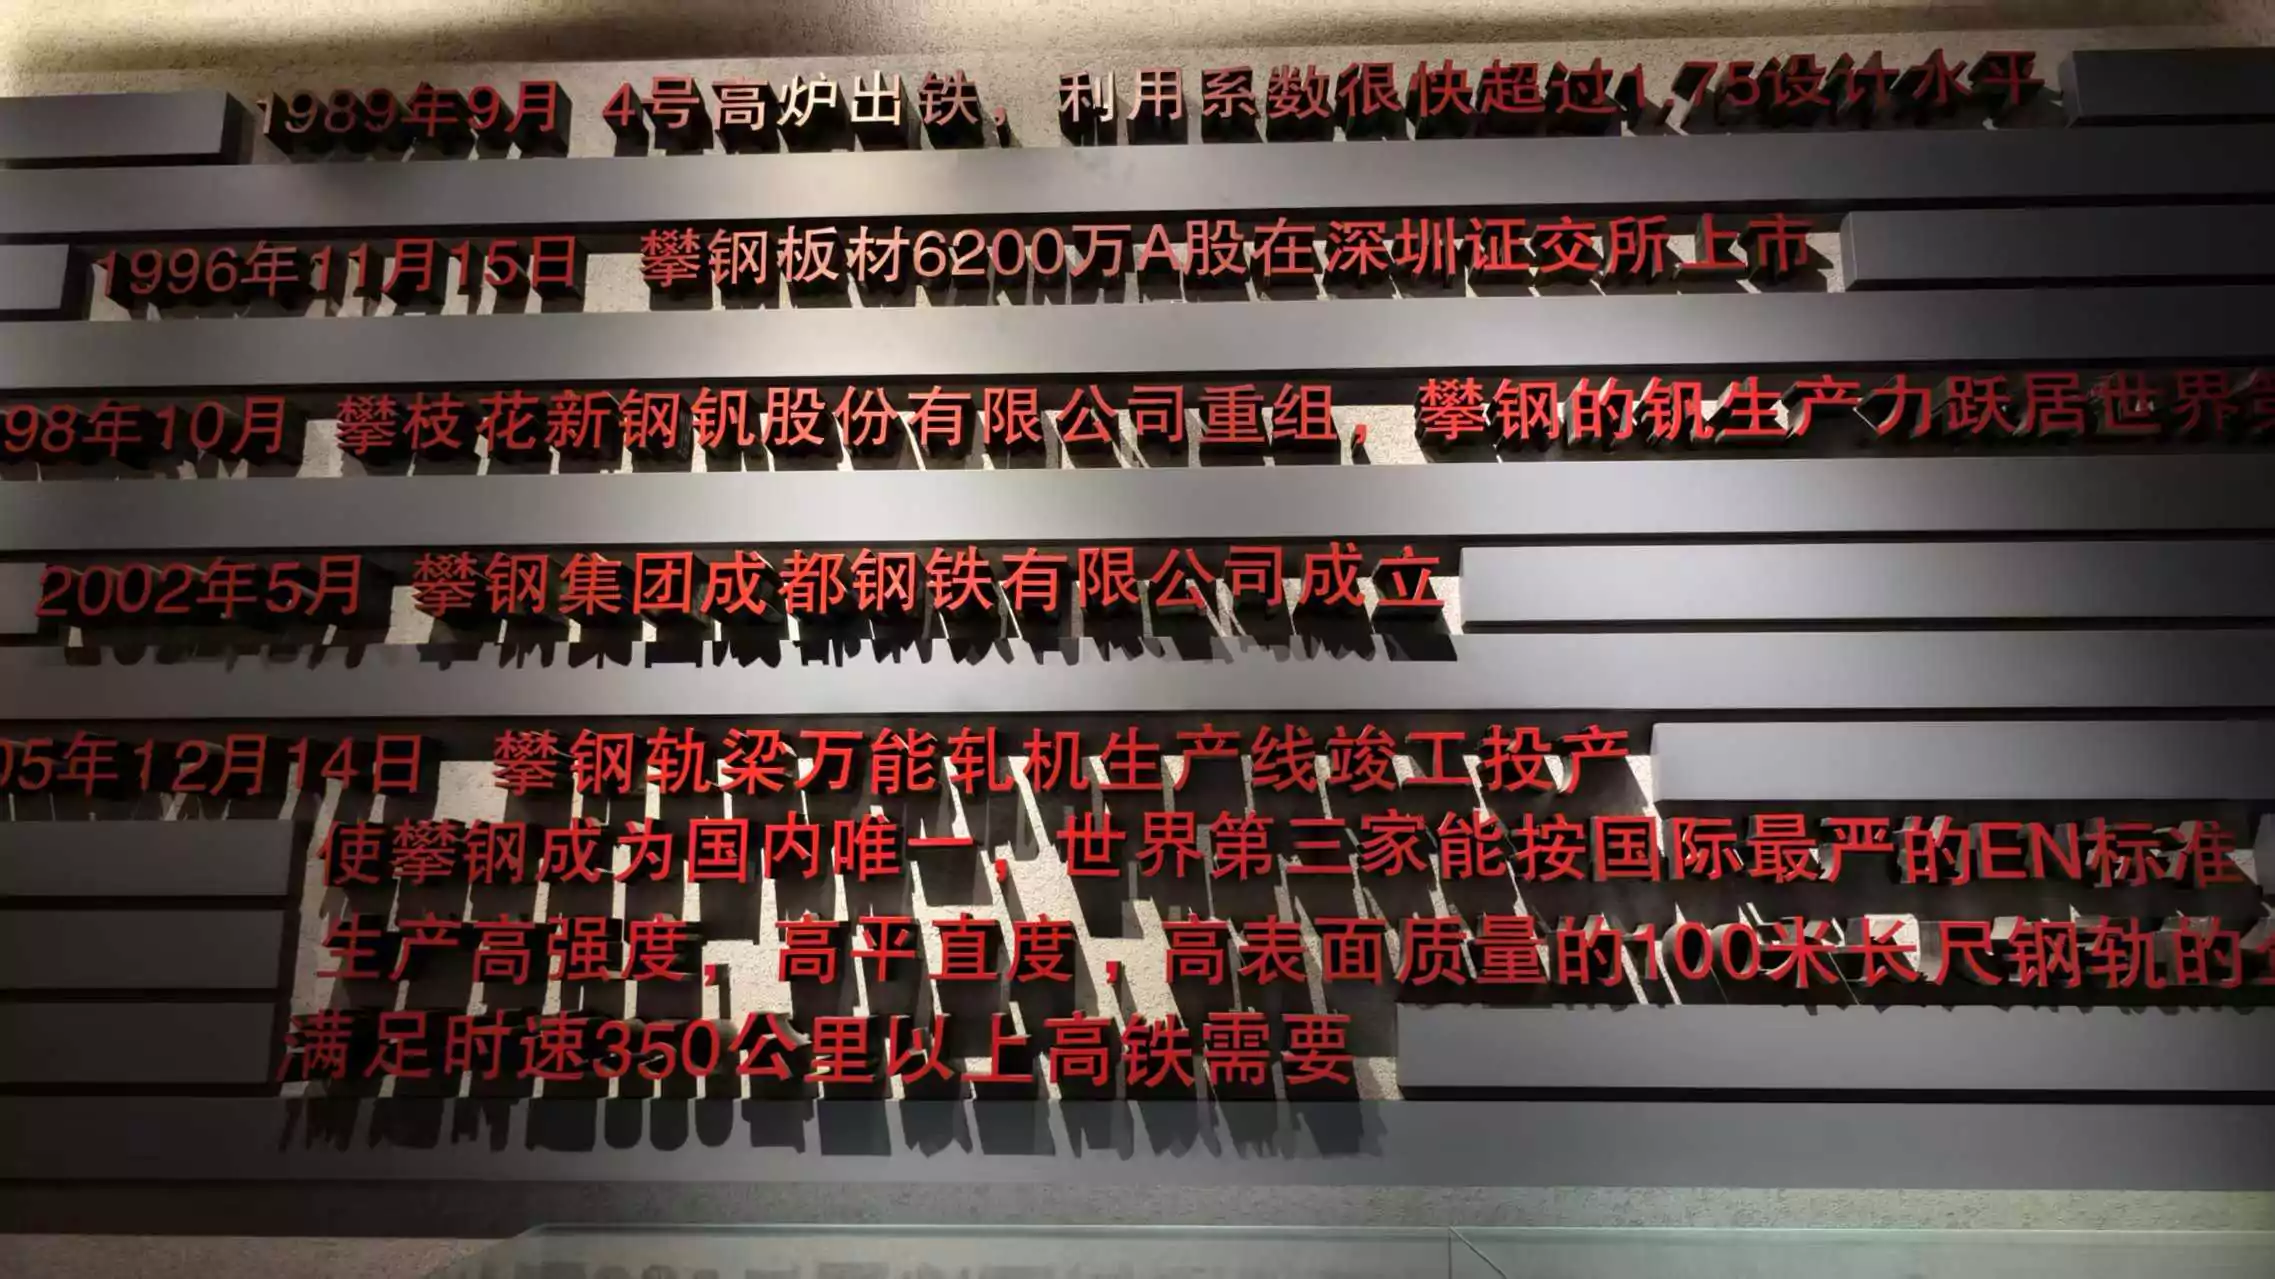 1989年9月 4号高炉出铁，利用系数很快超过1.75设计水平
1996年11月15日 攀钢板材6200万A股在深圳证交所上市
98年10月 攀枝花新钢钒股份有限公司重组，攀钢的钒生产力跃居世界第
2002年5月 攀钢集团成都钢铁有限公司成立
05年12月14日 攀钢轨梁万能轧机生产线竣工投产
使攀钢成为国内唯一，世界第三家能按国际最严的EN标准
生产高强度，高平直度，高表面质量的100米长尺钢轨的
满足时速350公里以上高铁需要